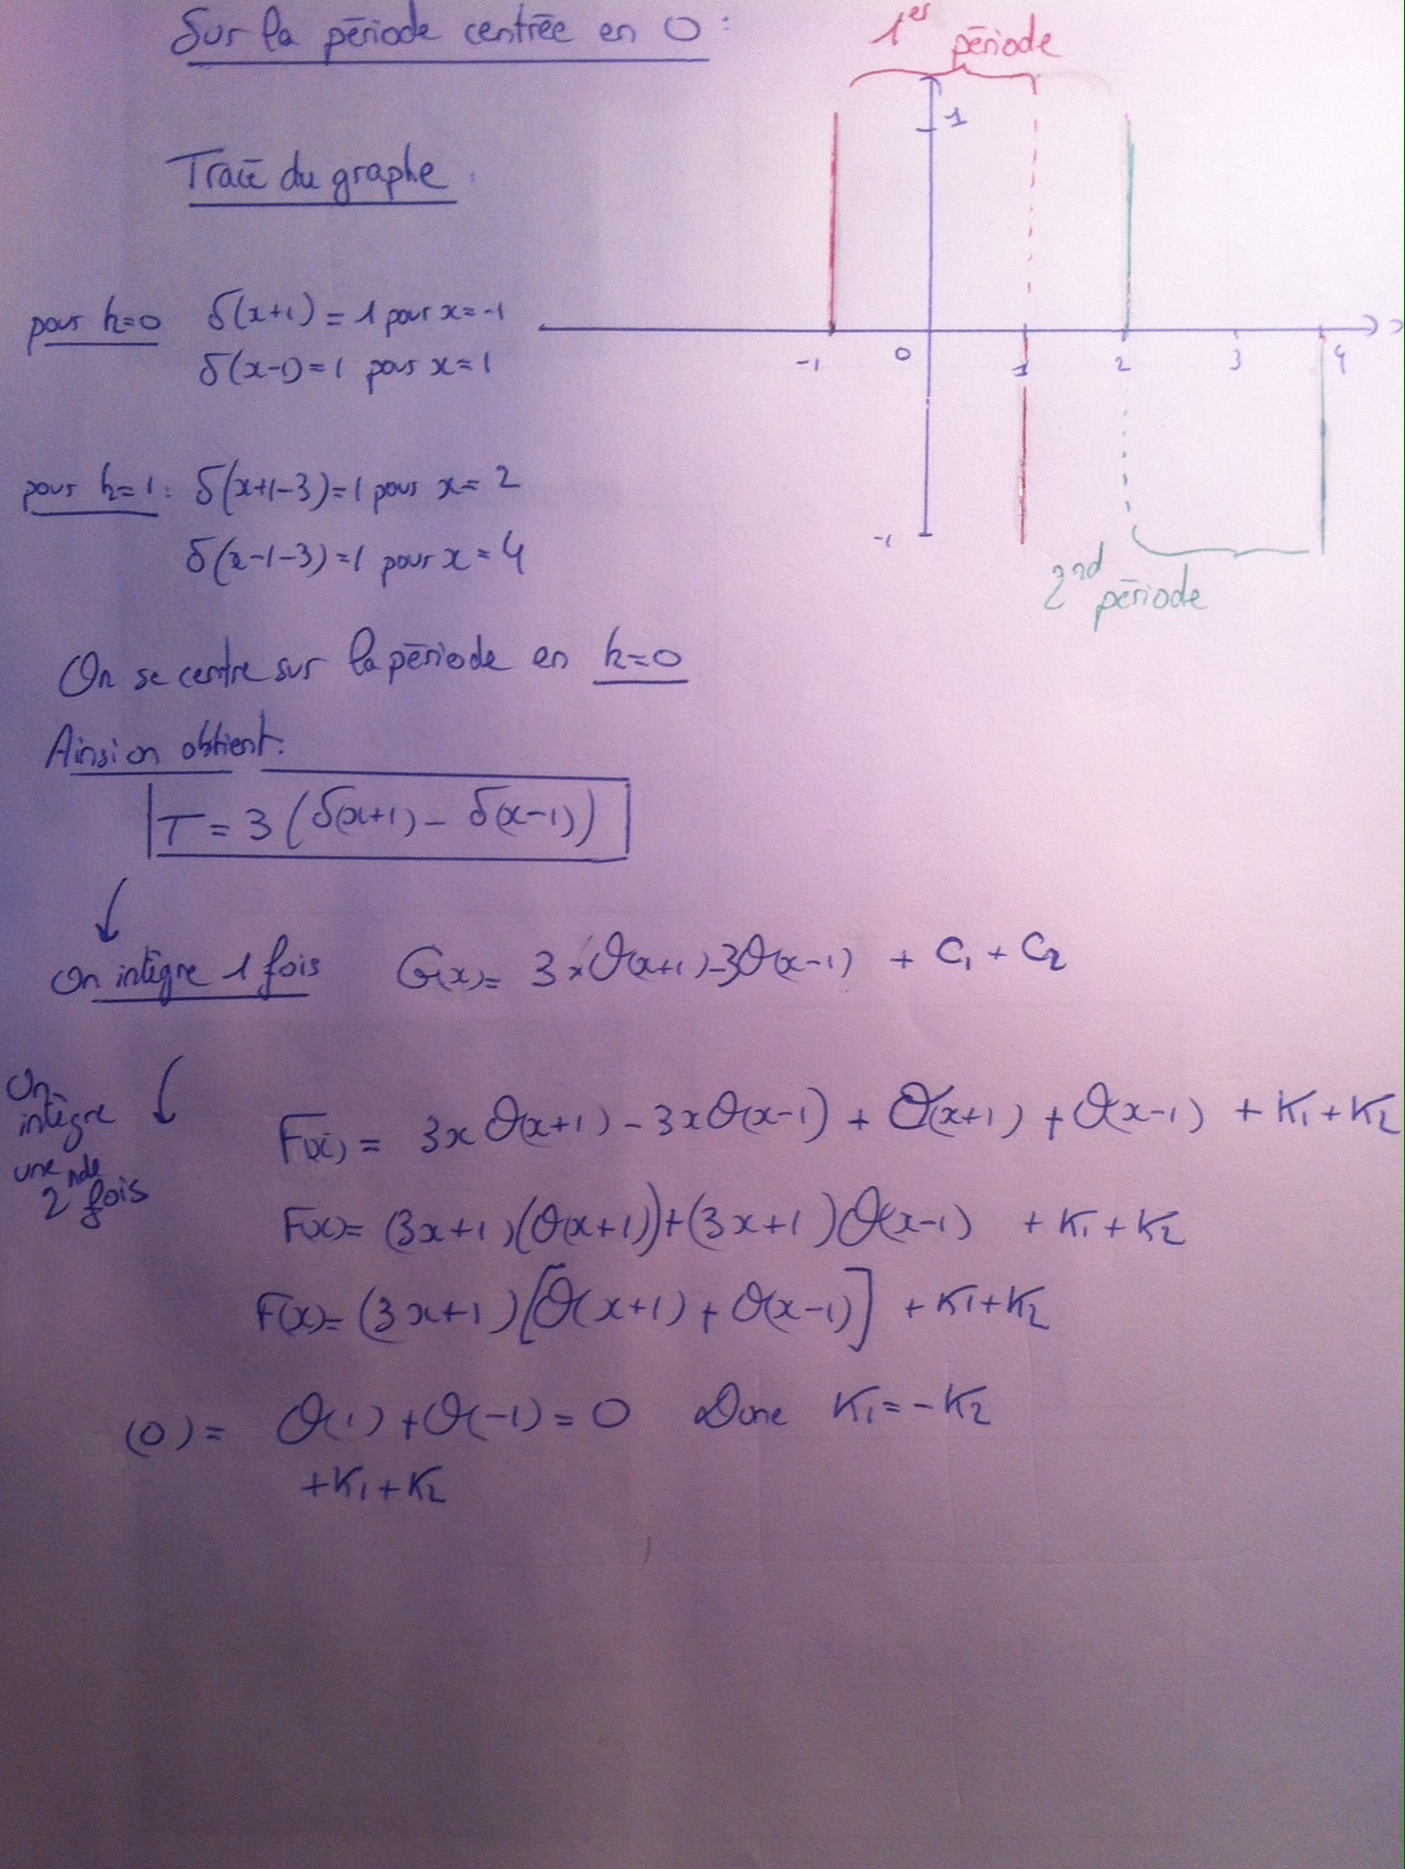 Sur la période centrée en 0 :
1er période
1
Tracé du graphe
pour k=0 δ(x+1) = 1 pour x=-1
δ(x-1) = 1 pour x=1
-1 0 1 2 3 4
pour k=1 : δ(x+1-3)=1 pour x=2
δ(x-1-3)=1 pour x=4
-1
2nd période
On se centre sur la période en k=0
Ainsi on obtient:
T = 3 (δ(x+1) - δ(x-1))
On intègre 1 fois G(x)= 3×θ(x+1)-3θ(x-1) + C1 + C2
On intègre une 2nde fois
F(x) = 3x θ(x+1) - 3x θ(x-1) + θ(x+1) + θ(x-1) + K1 + K2
F(x)= (3x+1)(θ(x+1))+(3x+1)θ(x-1) + K1 + K2
F(x)= (3x+1)[θ(x+1) + θ(x-1)] + K1+K2
(0) = θ(1) + θ(-1) = 0 Donc K1 = -K2
+K1+K2